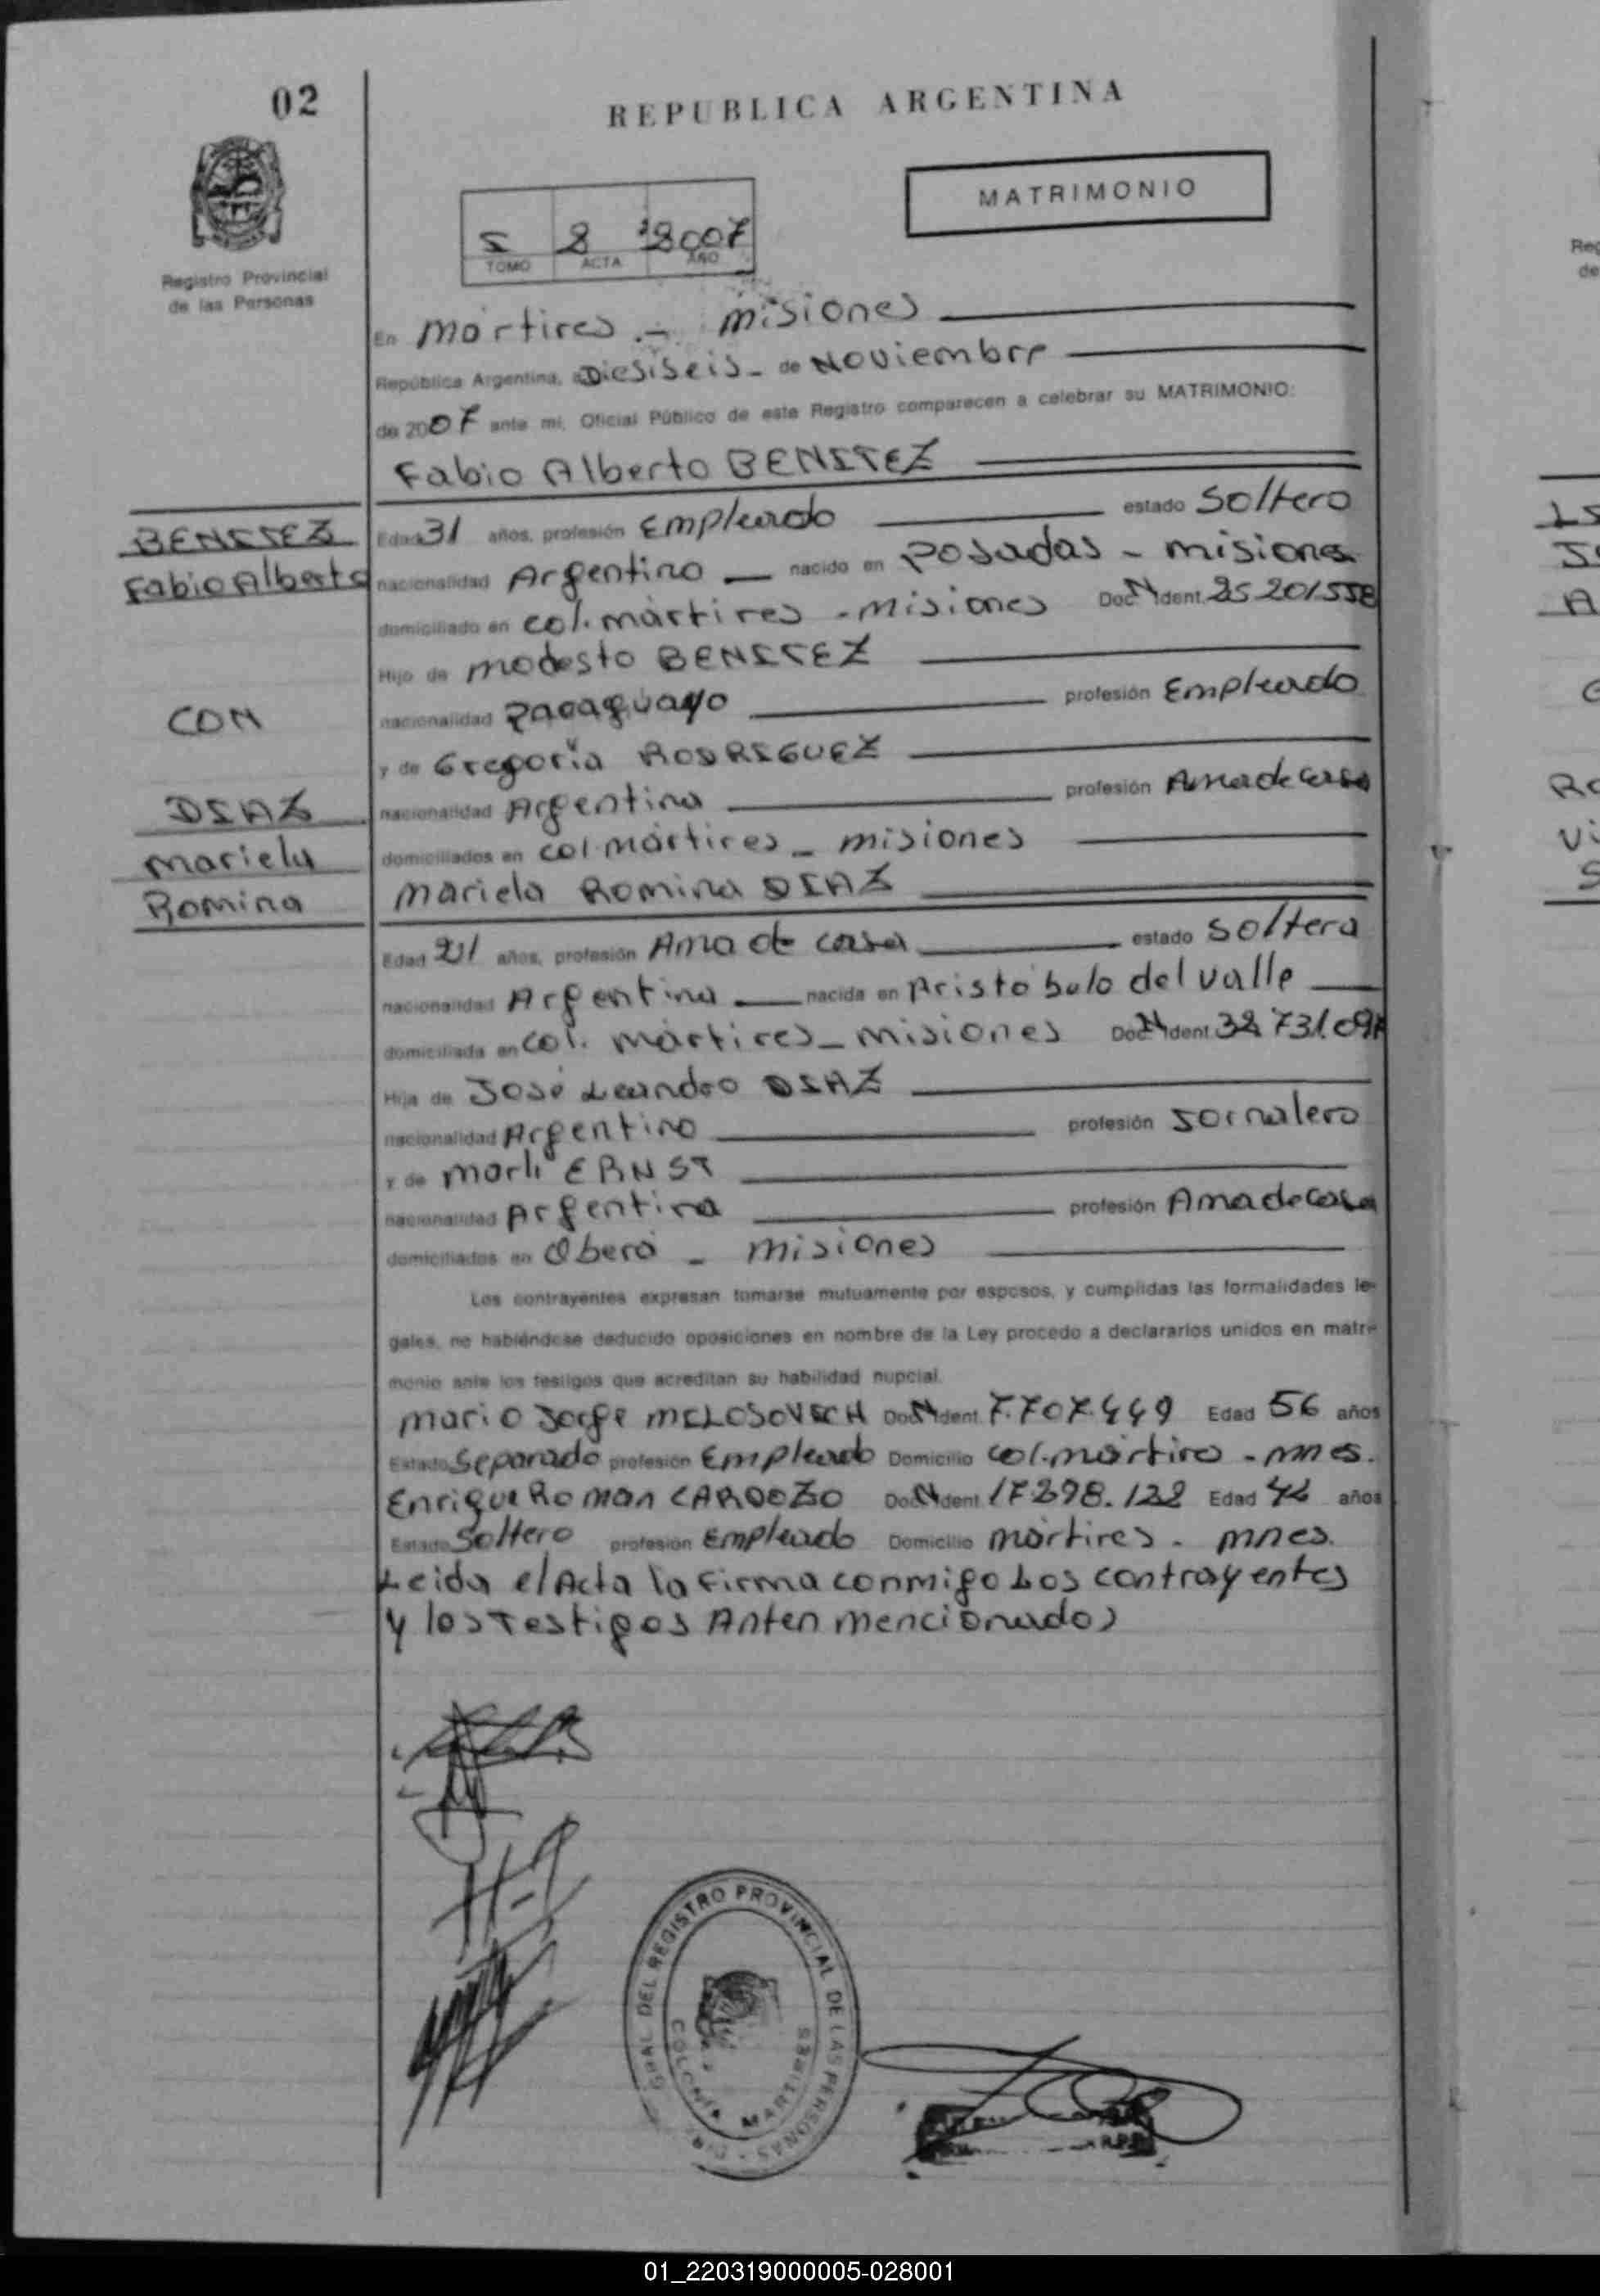 02
REPUBLICA ARGENTINA
MATRIMONIO
I 2 2007
TOMO ACTA AÑO
Registro Provincial
de las Personas
En Mártires.- Misiones
República Argentina, a Diesiseis- de Noviembre
de 2007 ante mi, Oficial Público de este Registro comparecen a celebrar su MATRIMONIO:
Fabio Alberto BENITEZ
BENITEZ
Fabio Alberto
CON
DIAZ
Mariela
Romina
Edad 31 años, profesión Empleado estado Soltero
nacionalidad Argentino nacido en Posadas - Misiones
domiciliado en Col. Mártires - Misiones Doc. N Ident. 25 201558
Hijo de Modesto BENITEZ
nacionalidad Paraguayo profesión Empleado
y de Gregoria RODRIGUEZ
nacionalidad Argentina profesión Ama de casa
domiciliados en Col Mártires - Misiones
Mariela Romina DIAZ
Edad 21 años, profesión Ama de casa estado Soltera
nacionalidad Argentina nacida en Aristóbulo del Valle
domiciliada en Col. Mártires - Misiones Doc. N Ident.
Hija de José Leandro DIAZ
nacionalidad Argentino profesión Jornalero
y de Marli ERNST
nacionalidad Argentina profesión Ama de Casa
domiciliados en Oberá - Misiones
Los contrayentes expresan tomarse mutuamente por esposos, y cumplidas las formalidades le-
gales, no habiéndose deducido oposiciones en nombre de la Ley procedo a declararlos unidos en matri-
monio ante los testigos que acreditan su habilidad nupcial.
Mario Jorge MILOSOVICH Doc. N Ident. 7.707.449 Edad 56 años
Estado Separado profesión Empleado Domicilio Col. Mártires - Mnes.
Enrique Roman CARDOZO Doc. N Ident. 17298.122 Edad 42 años
Estado Soltero profesión Empleado Domicilio Mártires - Mnes.
Leida el Acta la firma conmigo Los contrayentes
y los Testigos Anten mencionados
GRAL DEL REGISTRO PROVINCIAL DE LAS PERSONAS - DIR.
COLONIA MARTIRES
01_220319000005-028001